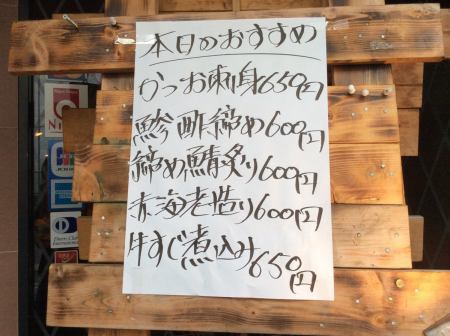 本日のおすすめ
かつお刺身650円
鯵酢締め600円
締め鯖炙り600円
赤海老造り600円
牛すじ煮込み650円
JCB